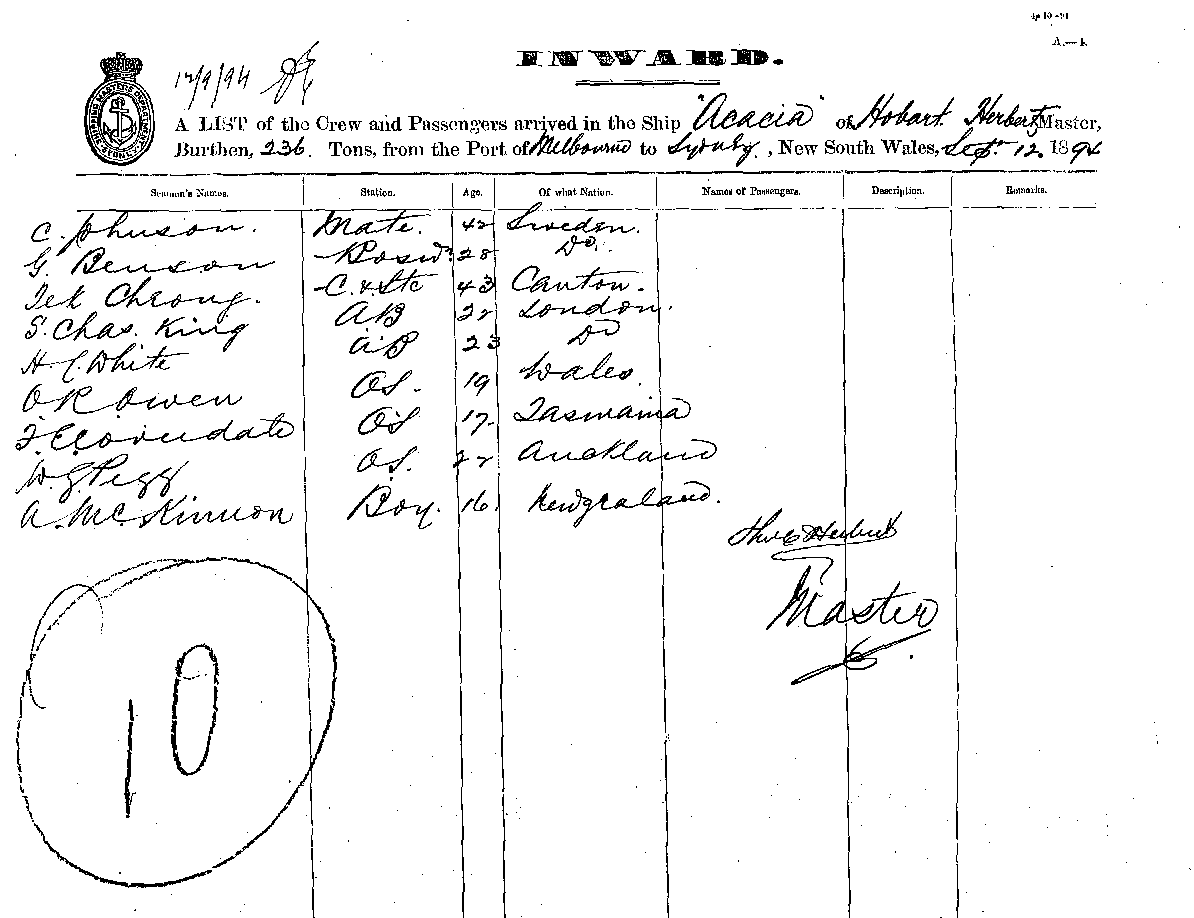 INWARD.
A.—1.
12/9/94
A LIST of the Crew and Passengers arrived in the Ship "Acacia" of Hobart Herbert, Master,
Burthen, 236. Tons, from the Port of Melbourne to Sydney, New South Wales, Sept. 12. 1894
Seamen's Names. Station. Age. Of what Nation. Names of Passengers. Description. Remarks.
C. Johnson. Mate. 42 Sweden.
G. Benson Bosw? 28 Do.
Tek Cheong. C. & Ste 43 Canton.
S. Chas. King AB 22 London.
H. C. White AB 23 Do
O R Owen OS. 19 Wales.
OS 17. Tasmania
W. G. Pegg OS. 22 Auckland
A. McKinnon Boy. 16. Newzealand.
Herbert
Master
10